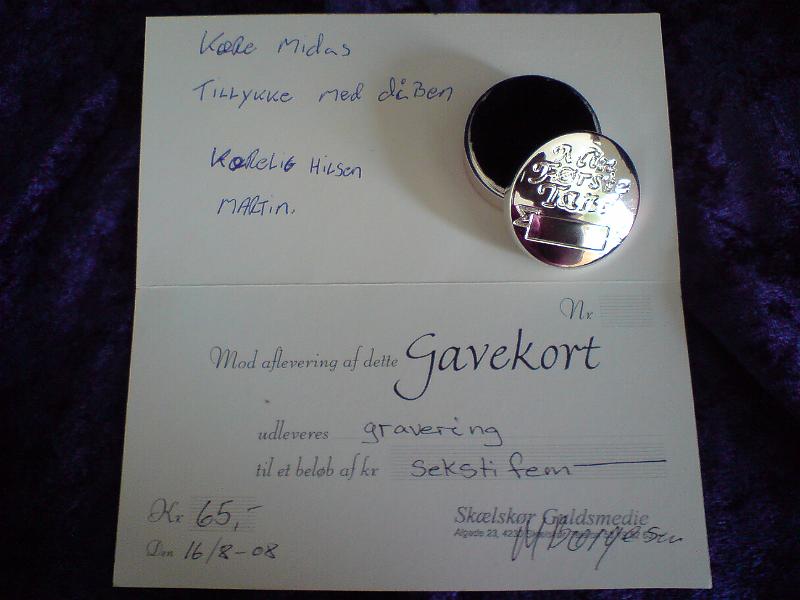 Kære Midas
Tillykke med dåben
Kærelig Hilsen
Martin.
Første
Tand
Nr.
Mod aflevering af dette Gavekort
udleveres gravering
til et beløb af kr seksti fem
Kr 65,-
Den 16/8-08
Skælskør Guldsmedie
Algade 23, 4230